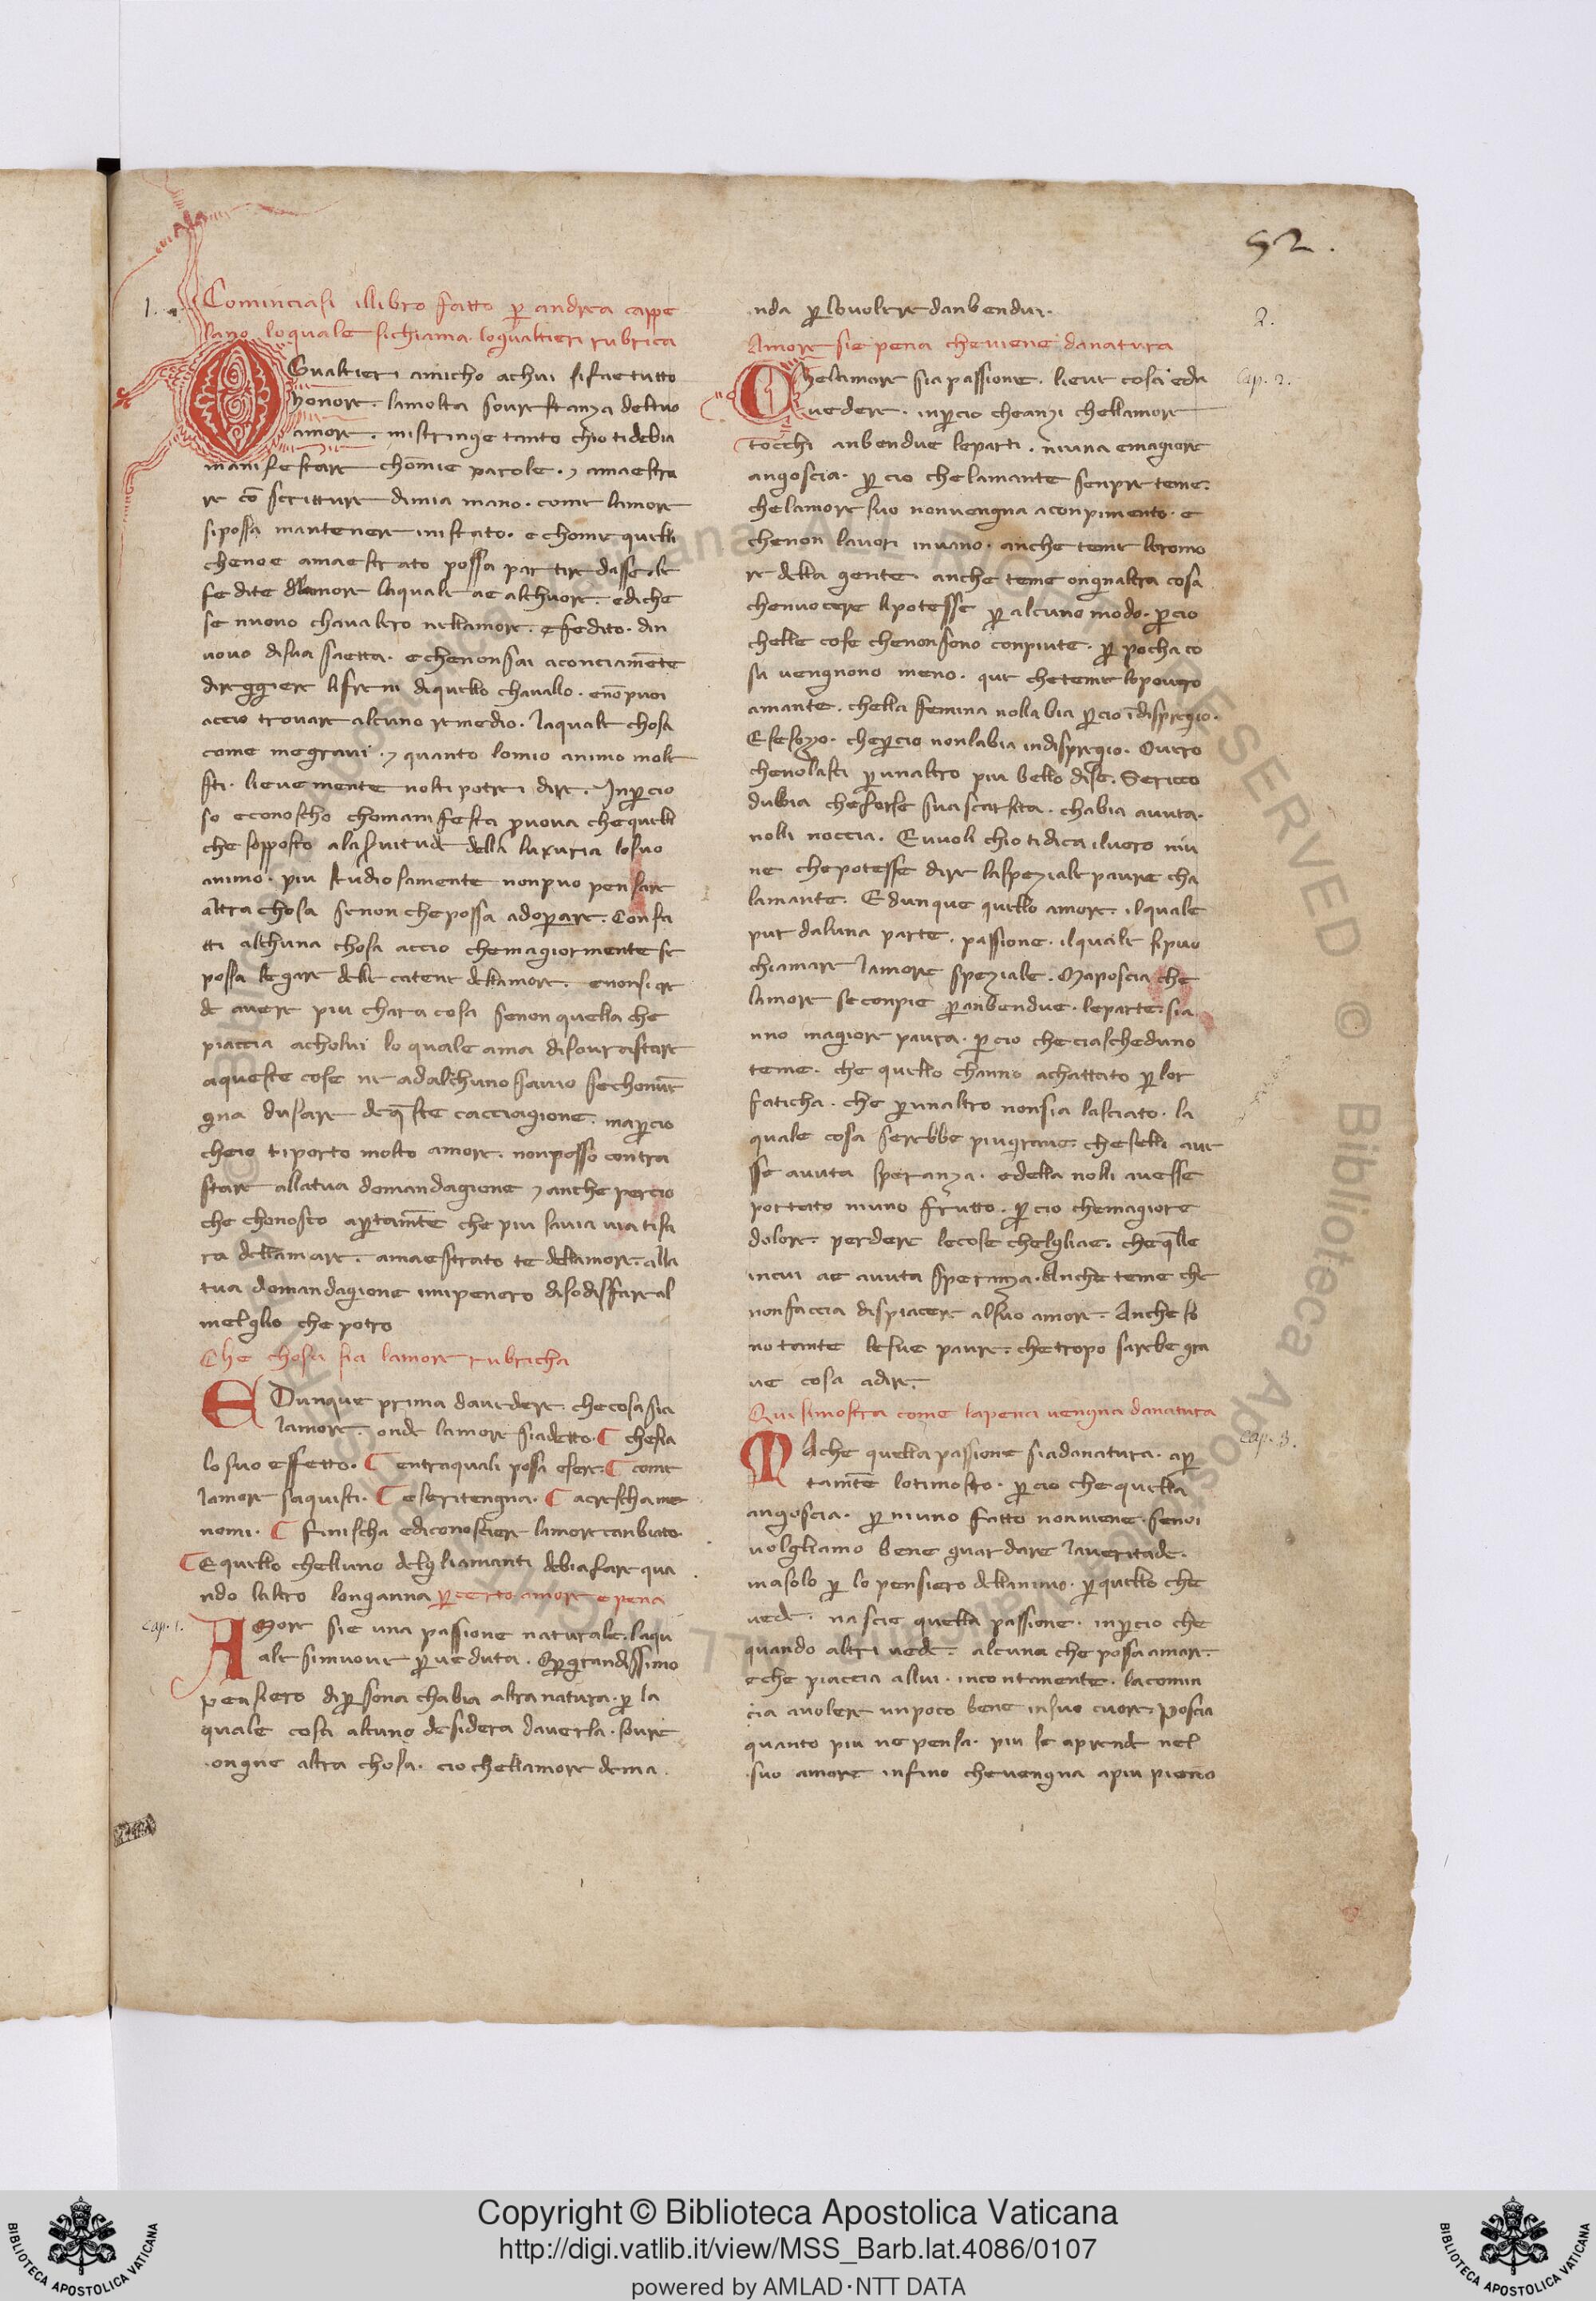 52.
1.
Cominciasi illibro fatto p andrea cappe
lano loquale sichiama loqualtieri rubrica
O Gualtieri amicho achui sifae tutto
honore. lamolta sourstanza deltuo
amore. mistringe tanto chio tidebia
manifestare chomie parole. ⁊ amaestra
re cō scritture dimia mano. come lamore
sipossa mantenere inistato. e chome quelli
chenoe amaestrato possa partire dasse le
fedite dlamore laquale ae alchuore. ediche
se nuouo chaualero nellamore. efedito. din
uouo disua saetta. echenonsai aconciamēte
direggiere lifreni diquello chauallo. enō puoi
accio trouare alcuno remedio. laquale chosa
come megraui. ⁊ quanto lomio animo mole
sti. lieuemente nolti potrei dire. Inpcio
so econoscho chomanifesta pruoua chequelli
che sopposto alasuitude della luxuria losuo
animo. piu studiosamente nonpuo pensare
altra chosa senon chepossa adoperare. Confa
tti alchuna chosa accio chemagiormente se
possa legare delle catene dellamore. enonsi cre
de auere piu chara cosa senon quella che
piaccia acholui lo quale ama disourastare
aqueste cose ne adalchuno sauio sechonuē
gna dusare deq̄ste cacciagione. mapcio
cheio tiporto molto amore. nonposso contra
stare allatua domandagione ⁊ anche percio
che chonosco aptamēte che piu sauia uia tisa
ra dellamare. amaestrato te dellamore. alla
tua domandagione impenero disodisfare al
melglio che potro
Che chosa sia lamore rubricha
E Dunque prima dauedere. checosa sia
lamore. onde lamore siadetto. chesia
losuo effetto. entraquali possa esere. come
lamore saquisti. eseritengna. acreschame
nomi. finischa ediconosciere lamore canbiato.
Equello chelluno delgliamanti debiafare qua
ndo laltro longanna p certo amore e pena
cap. 1.
A More sie una passione naturale. laqu
ale simuoue pueduta. Epgrandissimo
pensiero dipsona chabia altra natura. p la
quale cosa alcuno desidera dauerla. soure
ongne altra chosa. cio chellamore dema
nda p louolere danbendue.
2.
Amore sie pena cheuiene danatura
cap. 2.
C helamore sia passione. lieue cosa eda
uedere. inpcio cheanzi chellamore
tocchi anbendue leparti. niuna emagiore
angoscia. p cio chelamante senpre teme.
chelamore suo nonuengna aconpimento. e
chenon lauori inuano. anche teme loromo
re della gente. anche teme ongnaltra cosa
chenuocere lipotesse p alcuno modo. pcio
chelle cose chenonsono conpiute. p pocha co
sa uengnono meno. que cheteme lopouero
amante. chella femina nolla bia pcio ī dispregio.
Esesozo. chepcio nonlabia indispregio. Ouero
chenolasci punaltro piu bello dise. Sericco
dubia cheforse suascarseta. chabia auuta.
nolli noccia. Euuoli chio tidica iluero niu
ne chepotesse dire laspeziale paure cha
lamante. E dunque quello amore. ilquale
pur daluna parte. passione. ilquale sipuo
chiamare lamore speziale. Maposcia che
lamore seconpie panbendue. leparte. sia
nno magiore paura. pcio checiascheduno
teme. che quello channo achattato plor
faticha. che punaltro nonsia lasciato. la
quale cosa serebbe piugraue. cheselli aue
sse auuta speranza. edella nolli auesse
portato niuno frutto. p cio chemagiore
dolore. perdere lecose chelgliae. cheq̄lle
incui ae auuta speranza. Anche teme che
nonfaccia dispiacere alsuo amore. Anche so
no tante lesue paure. chetropo sarebe gra
ue cosa adire.
Qui simostra come lapena uengna danatura
cap. 3.
M Ache quella passione sia danatura. aper
tamēte lotimosto. pcio che quella
angoscia. p niuno fatto nonuiene. senoi
uolgliamo bene guardare laueritade.
masolo p lo pensiero dellanimo. pquello che
uede. nascie quella passione. inpcio che
quando altri uede. alcuna che possa amare.
eche piaccia allui. incontanente. lacomin
cia auolere unpoco bene insuo cuore. Poscia
quanto piu ne pensa. piu se aprende nel
suo amore infino cheuengna apiu pieno
Copyright © Biblioteca Apostolica Vaticana
http://digi.vatlib.it/view/MSS_Barb.lat.4086/0107
powered by AMLAD·NTT DATA